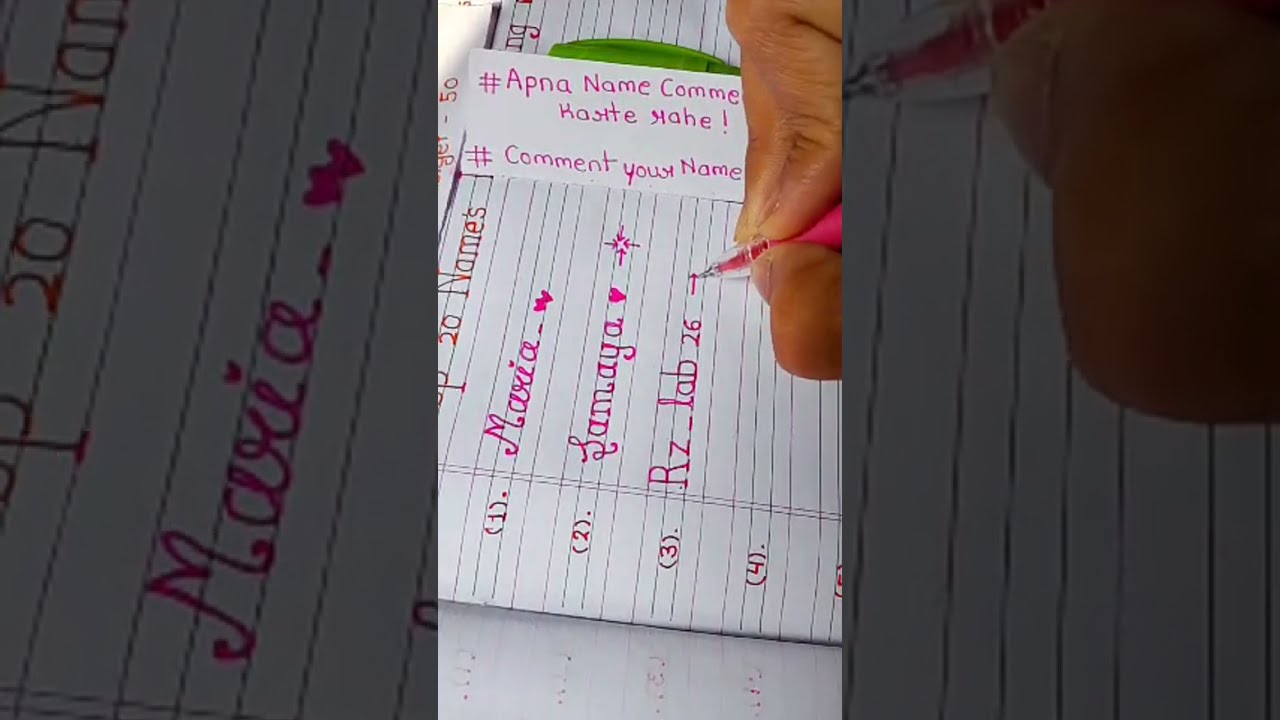 #Apna Name Comme
Karte rahe !
# Comment your Name
20 Names
(1). Maria-
(2). Samaya ♥
(3). Rz_lab 26 →
(4).